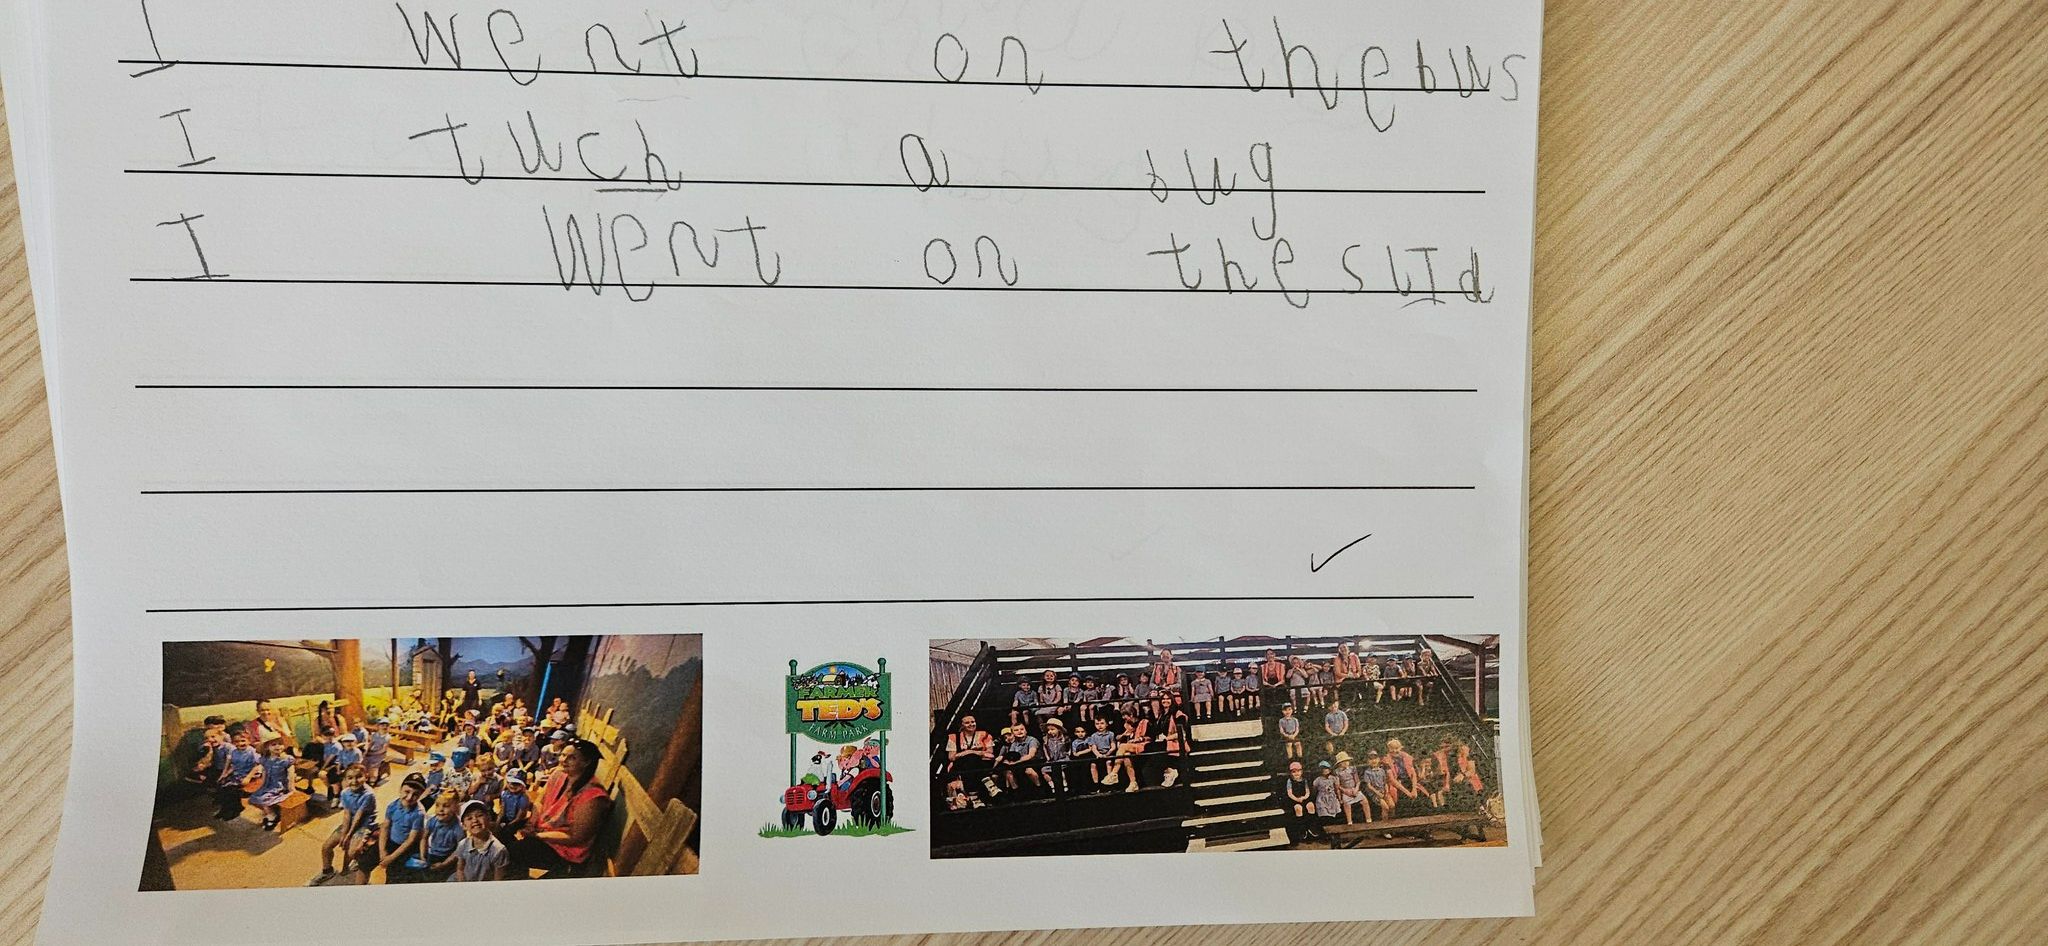 I went on thebus
I tuch a bug
I went on the slId
FARMER
TED'S
FARM PARK